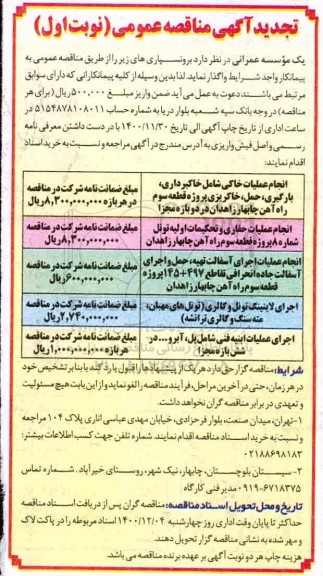 تجدید آگهی مناقصه عمومی (نوبت اول)
یک مؤسسه عمرانی در نظر دارد برونسپاری های زیر را از طریق مناقصه عمومی به
پیمانکار واجد شرایط واگذار نماید. لذا بدین وسیله از کلیه پیمانکارانی که دارای سوابق
مرتبط می باشند دعوت به عمل می آید ضمن واریز مبلغ ۵۰۰,۰۰۰ ریال (برای هر
مناقصه) در وجه بانک سپه شعبه بلوار دریا به شماره حساب ۵۱۵۴۸۷۸۱۰۸۰۱۱ در
ساعت اداری از تاریخ چاپ آگهی الی تاریخ ۱۴۰۰/۱۱/۳۰ با در دست داشتن معرفی نامه
رسمی و اصل فیش واریزی به آدرس مندرج در آگهی مراجعه و نسبت به خرید اسناد
اقدام نمایند:
انجام عملیات خاکی شامل خاکبرداری، بارگیری، حمل، خاکریزی پروژه قطعه سوم راه آهن چابهار زاهدان در دو بازه مجزا
مبلغ ضمانت نامه شرکت در مناقصه در هر بازه ۸,۳۰۰,۰۰۰,۰۰۰ ریال
انجام عملیات حفاری و تحکیمات اولیه تونل شماره ۸ پروژه قطعه سوم راه آهن چابهار زاهدان
مبلغ ضمانت نامه شرکت در مناقصه ۸,۳۰۰,۰۰۰,۰۰۰ ریال
انجام عملیات اجرای آسفالت تهیه، حمل و اجرای آسفالت جاده انحرافی تقاطع ۴۹۷+۱۴۵ پروژه قطعه سوم راه آهن چابهار زاهدان
مبلغ ضمانت نامه شرکت در مناقصه ۶۰۰,۰۰۰,۰۰۰ ریال
اجرای لاینینگ تونل و گالری (تونل های مهبان، مته سنگ و گالری ترانشه)
مبلغ ضمانت نامه شرکت در مناقصه ۲,۷۴۰,۰۰۰,۰۰۰ ریال
اجرای عملیات ابنیه فنی شامل پل، آبرو... در شش بازه مجزا
مبلغ ضمانت نامه شرکت در مناقصه هر بازه ۱,۰۰۰,۰۰۰,۰۰۰ ریال
شرایط: مناقصه گزار حق دارد هر یک از پیشنهادها را قبول یا رد کند یا بنابر تشخیص خود
در هر زمان، حتی در آخرین مراحل، فرآیند مناقصه را لغو نماید و از این بابت هیچ مسئولیت
و تعهدی در برابر مناقصه گران نخواهد داشت.
۱- تهران، میدان صنعت، بلوار فرحزادی، خیابان مهدی عباسی اناری پلاک ۱۰۴ مراجعه
و نسبت به خرید اسناد مناقصه اقدام نمایند. شماره تلفن جهت کسب اطلاعات بیشتر:
۰۲۱۸۸۶۹۸۱۸۳
۲- سیستان بلوچستان، چابهار، نیک شهر، روستای خیرآباد. شماره تماس
۰۹۱۹۰۶۷۱۸۳۷۵ مدیر فنی کارگاه
تاریخ و محل تحویل اسناد مناقصه: مناقصه گران پس از دریافت اسناد مناقصه
حداکثر تا پایان وقت اداری روز چهارشنبه ۱۴۰۰/۱۲/۰۴ اسناد مربوطه را در پاکت لاک
و مهر شده به نشانی مناقصه گزار تحویل دهند.
هزینه چاپ هر دو نوبت آگهی بر عهده برنده مناقصه می باشد.